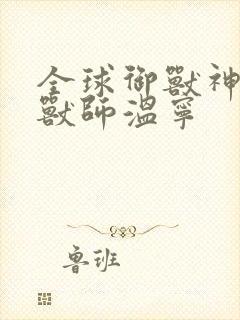 全球御獸神
獸師溫寧
魯班